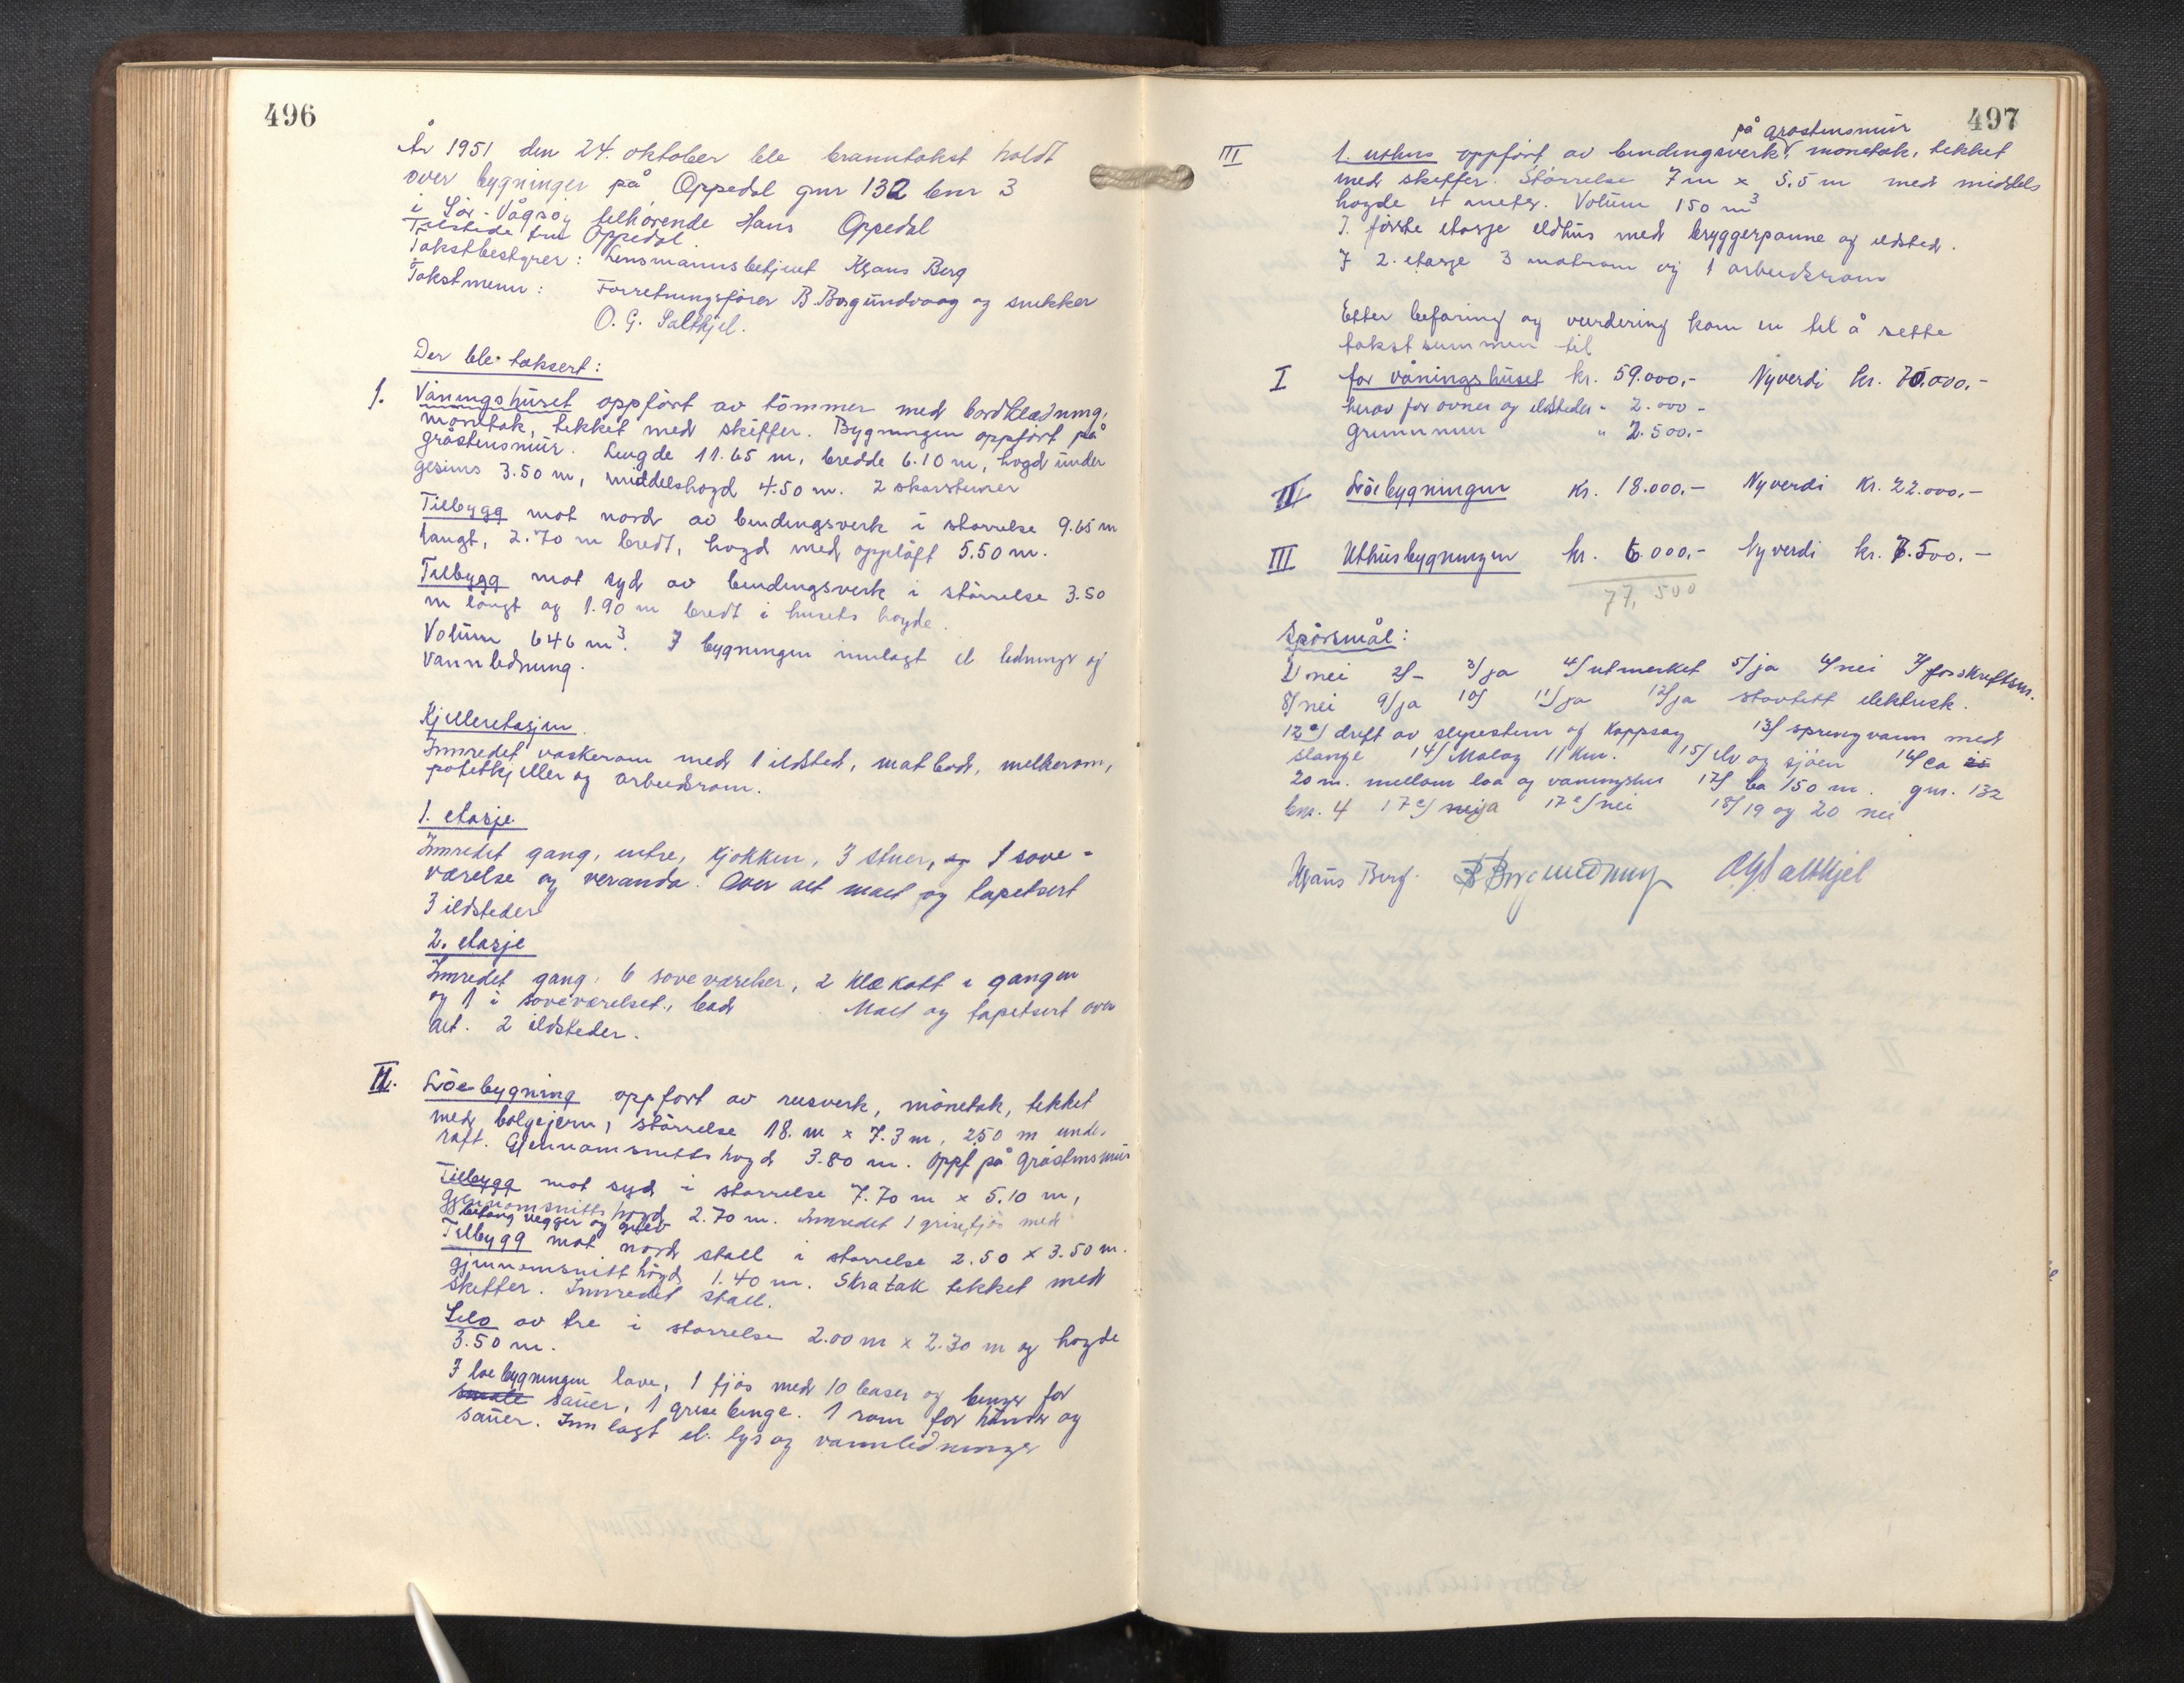 496
År 1951 den 24. oktober ble branntakst holdt
over bygninger på Oppedal gnr 132 bnr 3
i Sör-Vågsøy tilhörende Hans Oppedal
Tilstede fru Oppedal.
Takstbestyrer: Lensmannsbetjent Kjans Berg
Takstmenn: Forretningsförer B. Borgundvaag og snekker
O. G. Saltkjel.
Der ble taksert:
1. Våningshuset oppfört av tömmer med bordklædning,
mönetak, tekket med skiffer. Bygningen oppfört på
gråstensmur. Lengde 11.65 m, bredde 6.10 m, högd under
gesims 3.50 m, middelshögd 4.50 m. 2 skorstener
Tilbygg mot nord av bindingsverk i störrelse 9.65 m
langt, 2.70 m bredt, högd med opplöft 5.50 m.
Tilbygg mot syd av bindingsverk i störrelse 3.50
m langt og 1.90 m bredt i husets högde.
Volum 646 m3. I bygningen innlagt el ledninger og
vannledning.
Kjelleretasjen
Innredet vaskerom med 1 ildsted, matbod, melkerom,
potetkjeller og arbeidsrom.
1. etasje
Innredet gang, entre, kjökken, 3 stuer, og 1 sove-
værelse og veranda. Over alt malt og tapetsert
3 ildsteder
2. etasje
Innredet gang, 6 soveværelser, 2 klekott i gangen
og 1 i soveværelset, bad Malt og tapetsert over
alt. 2 ildsteder.
II. Löebygning oppfört av reisverk, mönetak, tekket
med bölgejern, störrelse 18. m x 7.3 m, 2.50 m under
raft. Gjennomsnittshögd 3.80 m. Oppf på gråstensmur
Tilbygg mot syd i störrelse 7.70 m x 5.10 m,
gjennomsnittshögd 2.70 m. Innredet 1 grisefjös med
betong vegger og gulv
Tilbygg mot nord stall i störrelse 2.50 x 3.50 m.
gjennomsnitt högd 1.40 m. Skratak tekket med
skiffer. Innredet stall.
Silo av tre i störrelse 2.00 m x 2.30 m og högde
3.50 m.
I löebygningen löve, 1 fjös med 10 baser og binger for
sauer, 1 grise binge. 1 rom for höner og
sauer. Innlagt el. lys og vannledninger
497
på gråstensmur
III 1. uthus oppfört av bindingsverk, mönetak, tekket
med skiffer. Störrelse 7 m x 5.5 m med middels
högde 4 meter. Volum 150 m3
I förste etasje eldhus med bryggerpanne og ildsted.
I 2. etasje 3 matrom og 1 arbeidsrom
Etter befaring og vurdering kom en til å sette
takstsummen til
I for våningshuset kr. 59.000,- Nyverdi kr. 70.000,-
herav for ovner og ildsteder " 2.000 -
Grunnmur " 2.500,-
II Löebygningen Kr. 18.000.- Nyverdi Kr. 22.000,-
III Uthusbygningen kr. 6.000,- Nyverdi kr. 7.500.-
77,500
Spörsmål:
1/ nei 2/ - 3/ ja 4/ utmerket 5/ ja 6/ nei 7/ forskriftsm.
8/ nei 9/ ja 10/ 11/ ja 12/ ja stövtett elektrisk.
12e/ drift av slipestein og kappsag 13/ springvann med
slange 14/ Måløy 11 km. 15/ elv og sjöen 16/ ca 25
20 m. mellom löa og våningshus 17/ ca 150 m. gnr. 132
bnr. 4 17c/ ja 17e/ nei 18/ 19 og 20 nei
Kjans Berg. B Borgundvaag OGSaltkjel